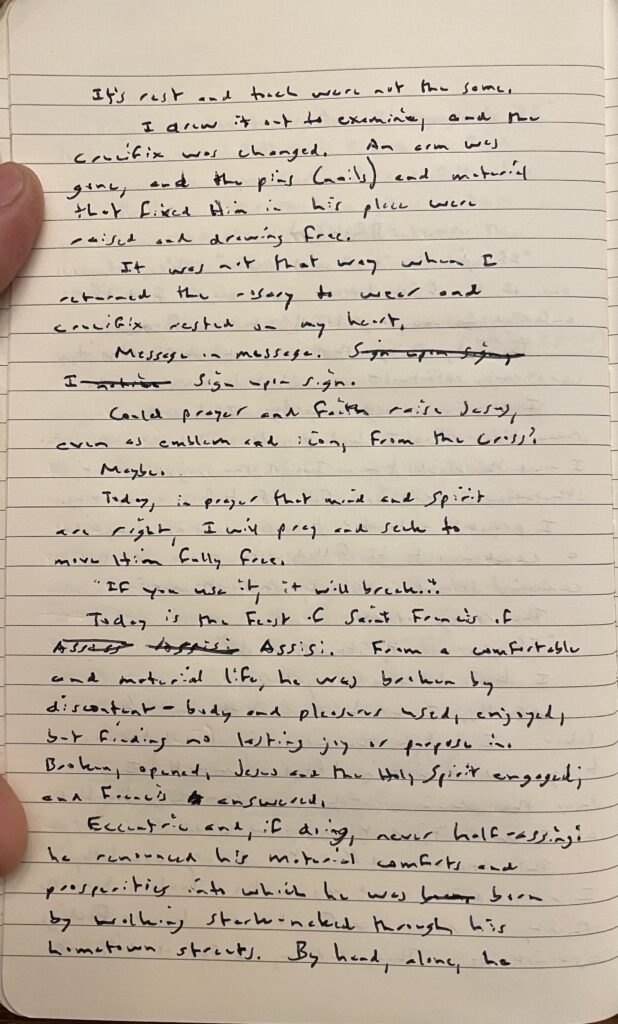 It's rest and touch were not the same.
I drew it out to examine, and the
crucifix was changed. An arm was
gone, and the pins (nails) and material
that fixed Him in his place were
raised and drawing free.
It was not that way when I
returned the rosary to wear and
crucifix rested on my heart.
Message in message. Sign upon sign,
I notice Sign upon sign.
Could prayer and faith raise Jesus,
even as emblem and icon, from the Cross?
Maybe.
Today, in prayer that mind and spirit
are right, I will pray and seek to
move Him fully free.
"If you use it, it will break."
Today is the Feast of Saint Francis of
Assisi. From a comfortable
and material life, he was broken by
discontent - body and pleasures used, enjoyed,
but finding no lasting joy or purpose in.
Broken, opened, Jesus and the Holy Spirit engaged;
and Francis answered.
Eccentric and, if doing, never half-assing:
he renounced his material comforts and
prosperities into which he was born
by walking stark-naked through his
hometown streets. By hand, alone, he